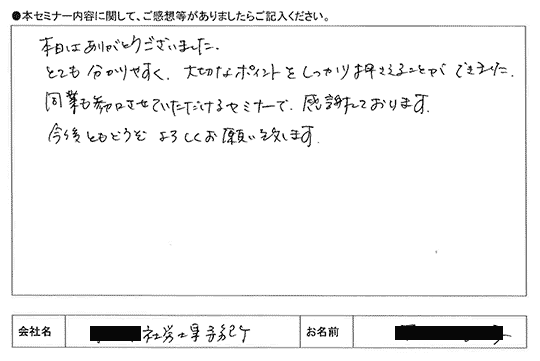 ●本セミナー内容に関して、ご感想等がありましたらご記入ください。
本日はありがとうございました.
とても分かりやすく、大切なポイントをしっかり押さえることができました.
同業も参加させていただけるセミナーで、感謝しております.
今後ともどうぞよろしくお願い致します.
会社名 社労士事務所 お名前